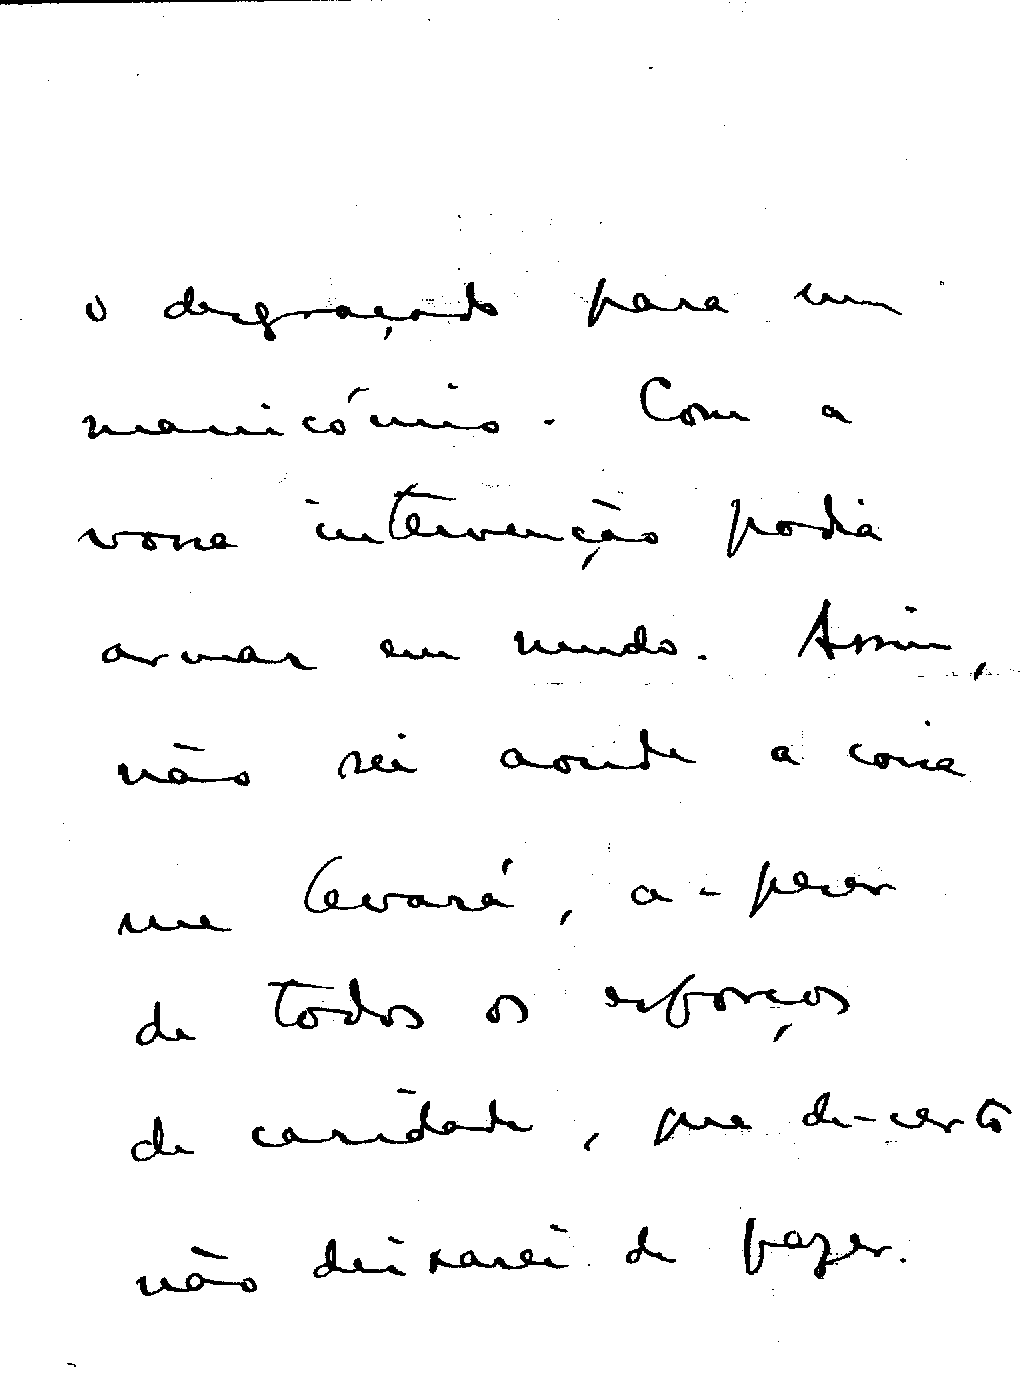 o desgraçado para um
manicómio. Com a
vossa intervenção podia
armar em mudo. Assim,
não sei aonde a coisa
me levará, a-pesar
de todos os esforços
de caridade, que de-certo
não deixarei de fazer.